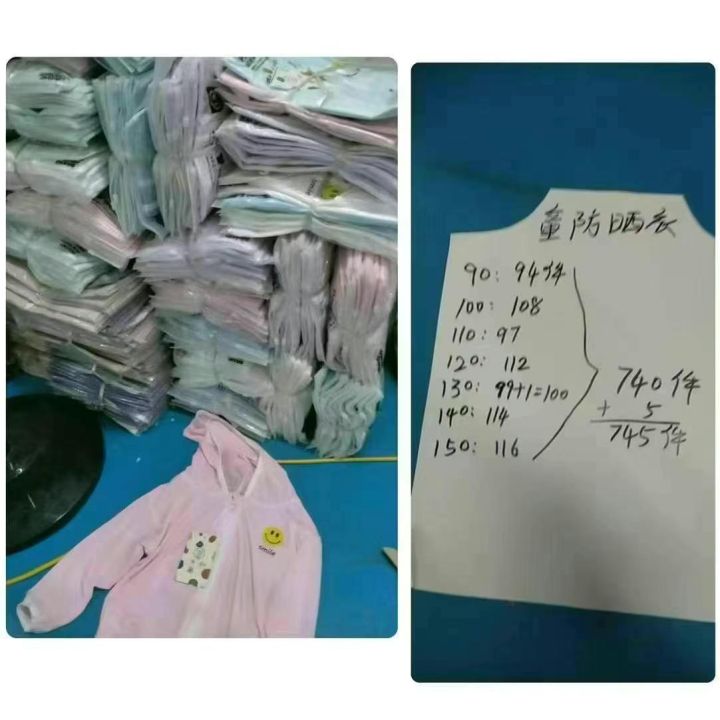 smile
童防晒衣
90: 94件
100: 108
110: 97
120: 112
130: 99+1=100
140: 114
150: 116
740件
+ 5
745件